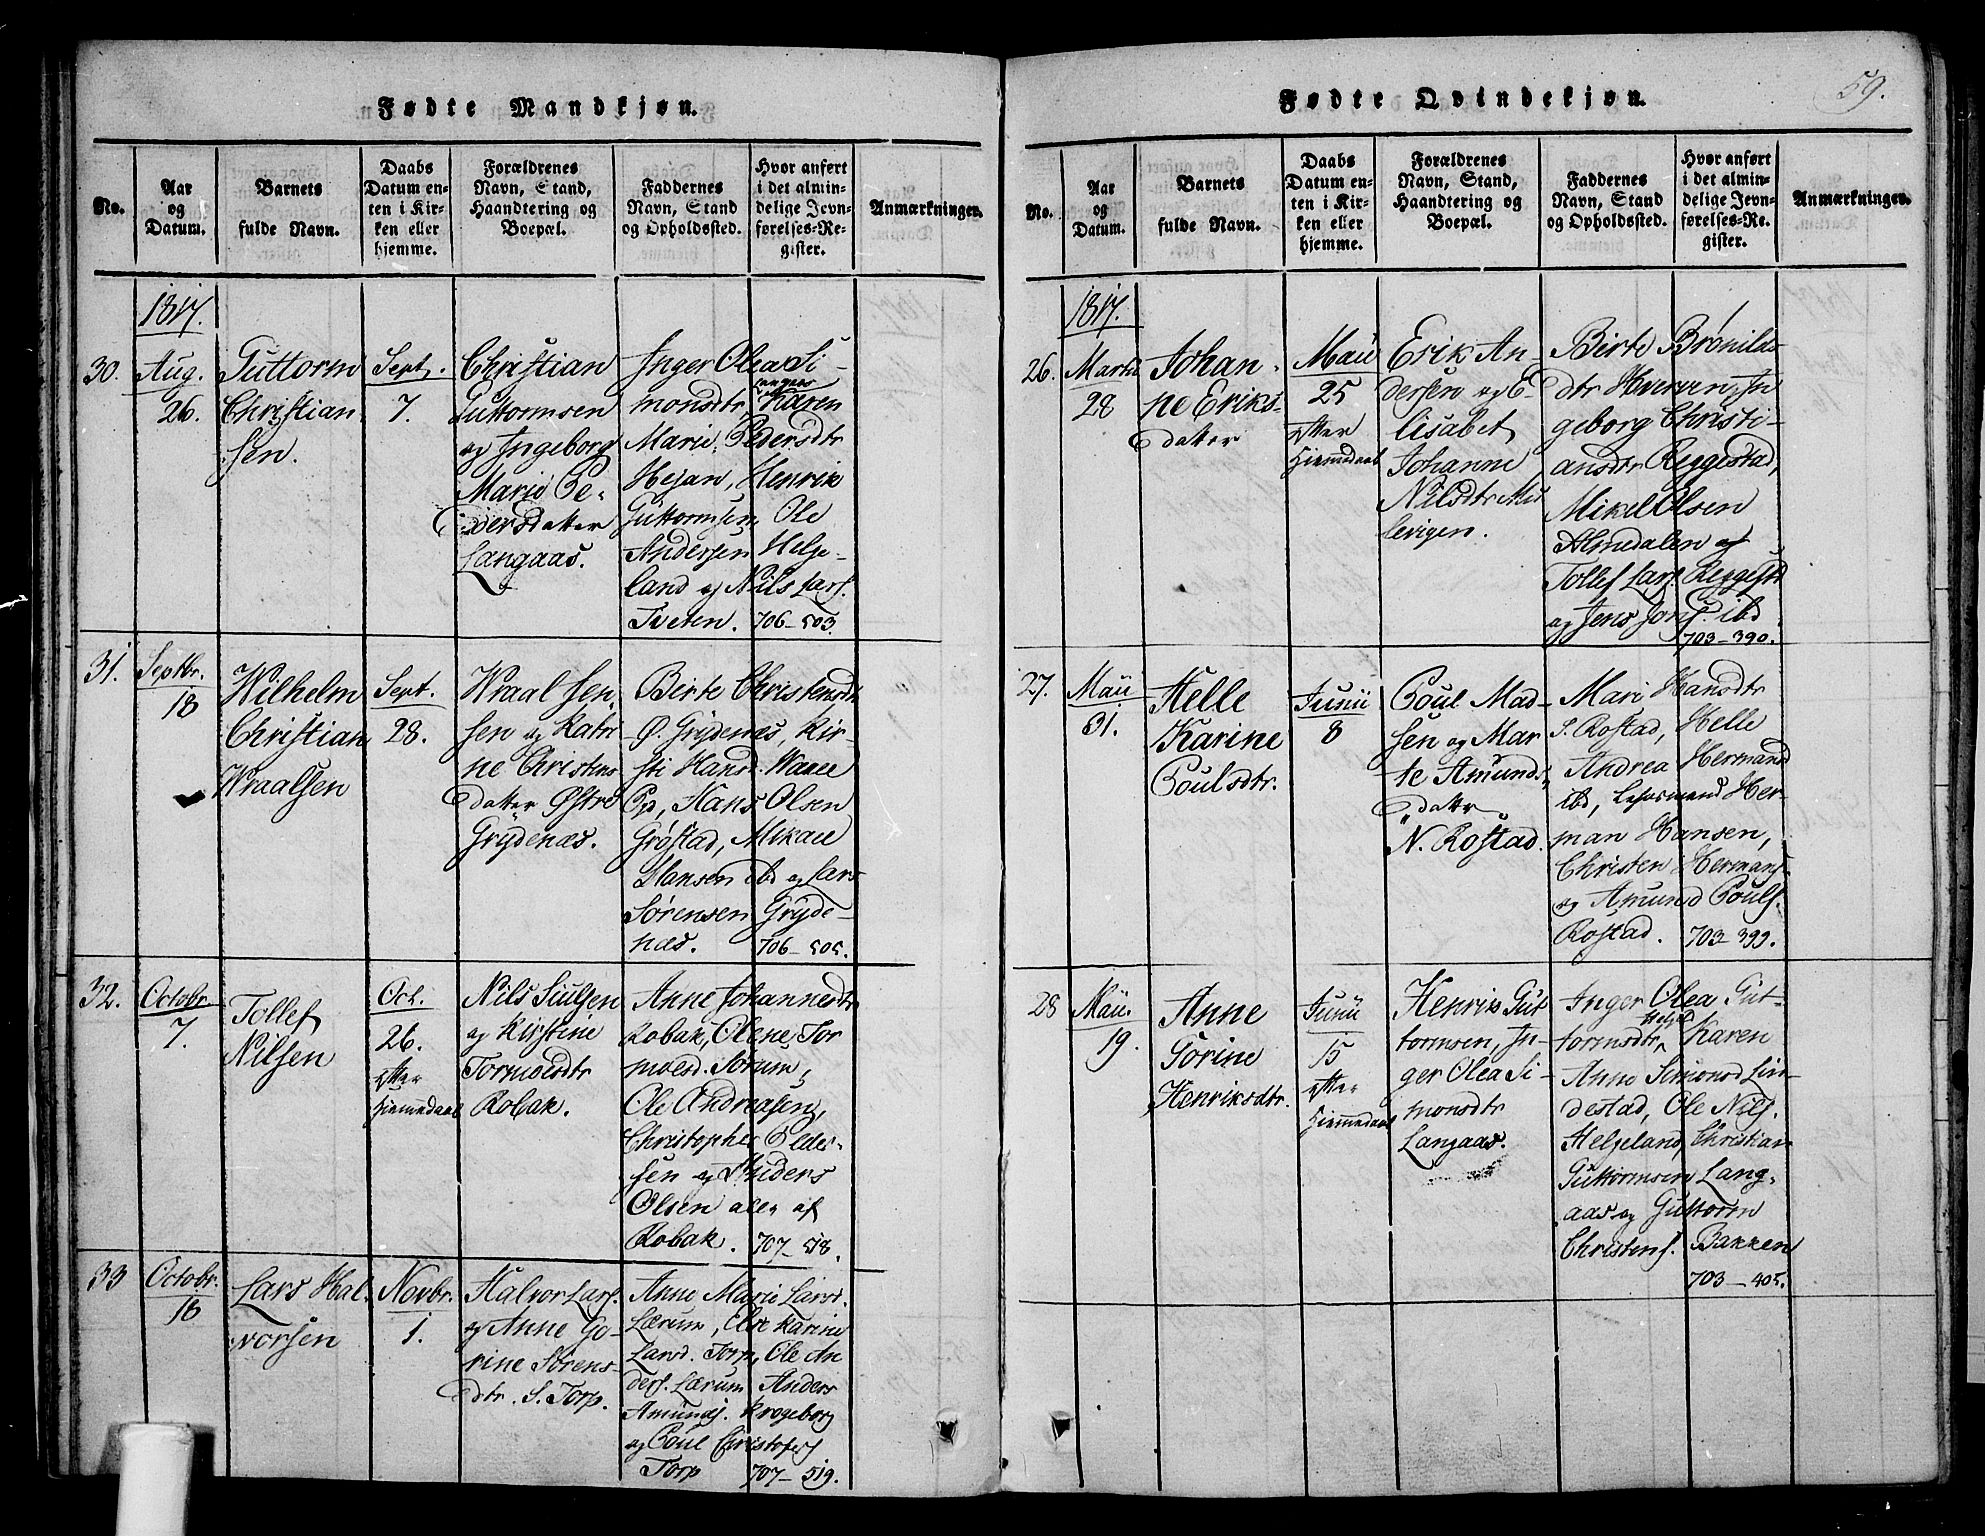 Fødte Mandkjøn.
No.
Aar
og
Datum.
Barnets
fulde Navn.
Daabs
Datum en-
ten i Kir-
ken eller
hjemme.
Forældrenes
Navn, Stand,
Haandtering og
Boepæl.
Faddernes
Navn, Stand
og Opholdssted.
Hvor anført
i det almin-
delige Jevn-
førelses-Re-
gister.
Anmærkninger.
1817.
30.
Aug.
26.
Guttorm
Christian
sen.
Sept.
7.
Christian
Guttormsen
og Ingeborg
Marie Pe-
dersdatter
Langaas.
Inger Olea Si-
monsdtr Langaas Karen
Marie Pedersdtr
Hejan, Henrik
Guttormsen, Ole
Andersen Helje-
land og Nils Lars.
Tveten. 706-503.
31.
Septbr.
18
Wilhelm
Christian
Wraalsen
Sept.
28.
Wraal Sen-
sen og Katri-
ne Christens
datter Østre
Grydenæs.
Birte Christensdtr
Ø. Grydenæs, Kir-
sti Hansd.
Hans Olsen
Grøstad, Mikael
Hansen ibd og Lars
Sørensen Gryde-
næs. 706-505.
32.
Octobr.
7.
Tollef
Nilsen
Oct.
26.
efter
Hiemmedaab
Nils
og Kirstine
Tormoesdtr
Robak.
Anne Johannesdtr
Robak, Olene Tor
moesd. Sorum,
Ole Andreasen,
Christopher Peder-
sen og Anders
Olsen alle af
Robak. 707-518.
33
Octobr.
18
Lars Hal-
vorsen
Novbr.
1.
Halvor Lars.
og Anne Go-
rine Sørens-
dtr. S. Torp.
Anne Marie Larsd.
Lærum, Else Karine
Larsd. Torp, Ole An
ders. Lærum Anders
Amunds. Krogeborg
og Poul Christofers
Torp 707-519.
59.
Fødte Qvindekjøn.
No.
Aar
og
Datum.
Barnets
fulde Navn.
Daabs
Datum en-
ten i Kir-
ken eller
hjemme.
Forældrenes
Navn, Stand,
Haandtering og
Boepæl.
Faddernes
Navn, Stand
og Opholdssted.
Hvor anført
i det almin-
delige Jevn-
førelses-Re-
gister.
Anmærkninger.
1817.
26.
Martii
28
Johan-
ne Eriks-
datter
Maii
25
efter
Hiemmedaab
Erik An-
dersen og E-
lisabet
Johanne
Nilsdtr
levigen.
Birte Brønilds
dtr Hverven, In
geborg Christi-
ansdtr Reggestad,
Mikel Olsen
Almedalen og
Tollef Lars. Reggestd
og Jens Jons. ibd.
703-390.
27.
Maii
31.
Helle
Karine
Poulsdtr.
Junii
8
Poul Mad-
sen og Mar
te Amunds-
datter
N. Rostad.
Mari Hansdtr
S. Rostad, Helle
Andrea Hermansd
ibd, Lehnsmand Her-
man Hansen,
Christen Hermans.
og Amund Pouls.
Rostad. 703-399.
28
Maii.
19.
Anne
Gorine
Henriksdtr.
Junii
15
efter
Hiemmedaab
Henrik Gut
tormsen, In-
ger Olea Si-
monsdtr
Langaas.
Inger Olea Gut-
tormsdtr, Karen
Anne Simonsd Lin
destad, Ole Nils.
Helgeland, Christian
Guttormsen Lang-
aas og Guttorm
Christens. Bakken
703-405.